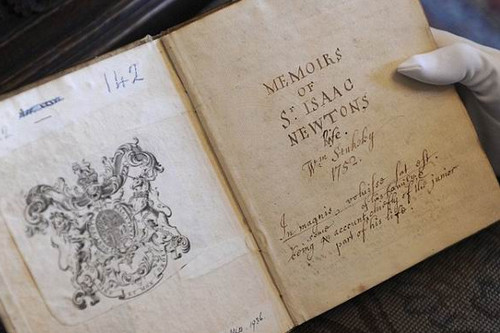 142
MEMOIRS
OF
Sr. ISAAC
NEWTONS
life.
Wm Stukeley
1752.
In magnis, voluisse sat est.
being some account of his family
& chiefly of the junior
part of his life.
1936